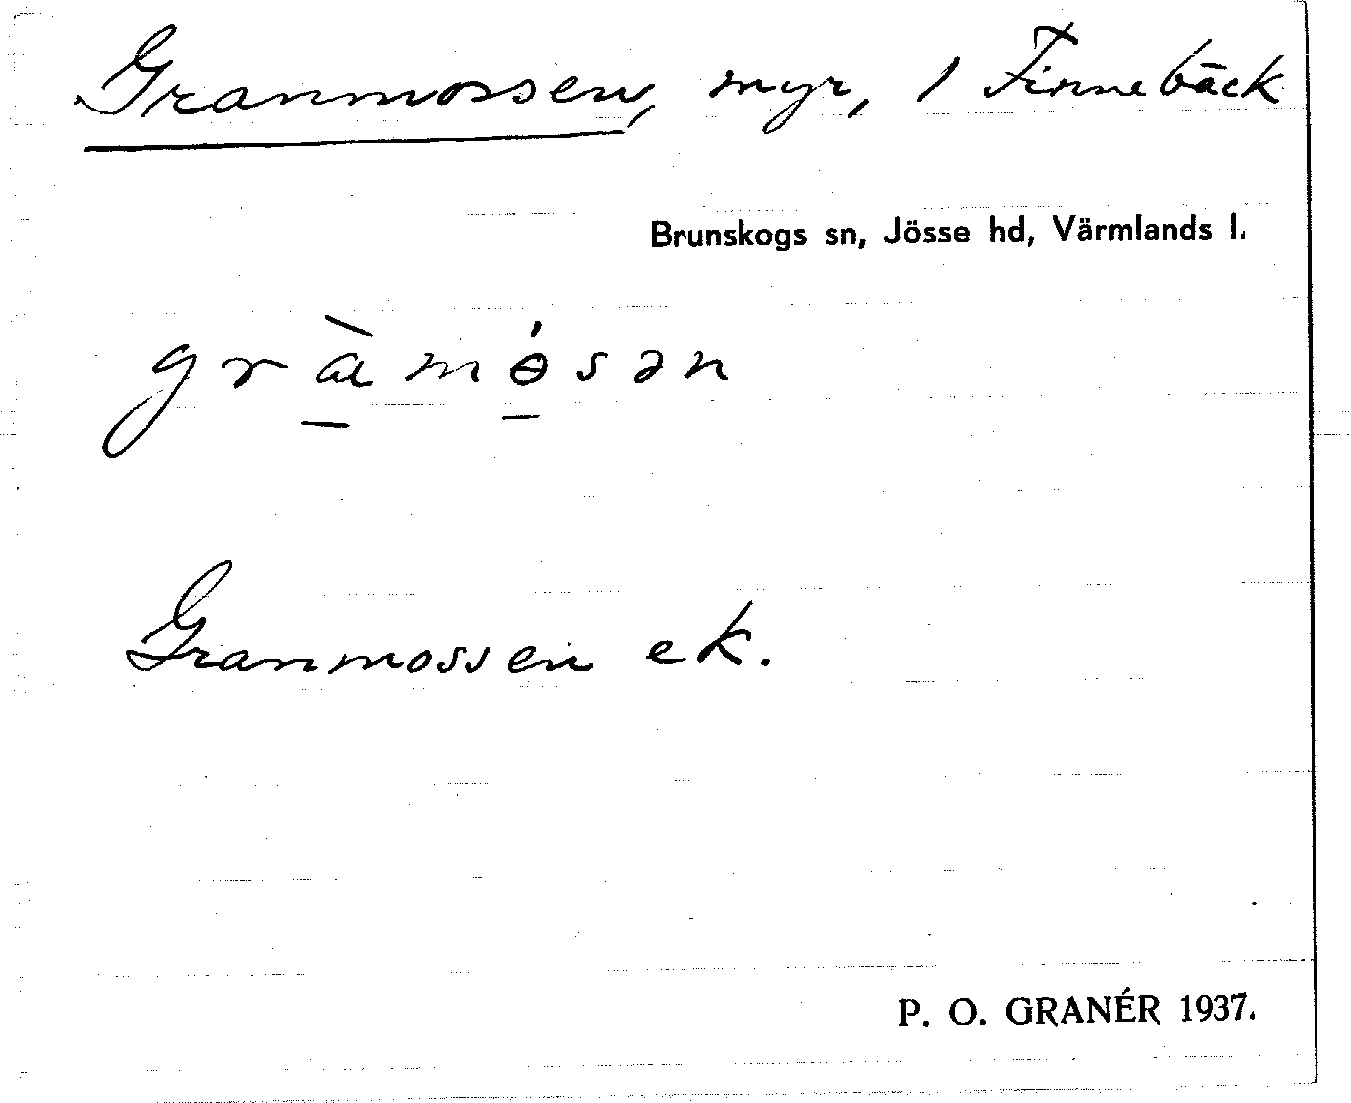 Granmossen, myr, 1 Finnebäck
Brunskogs sn, Jösse hd, Värmlands l.
gràmɵ́sən
Granmossen ek.
P. O. GRANÉR 1937.